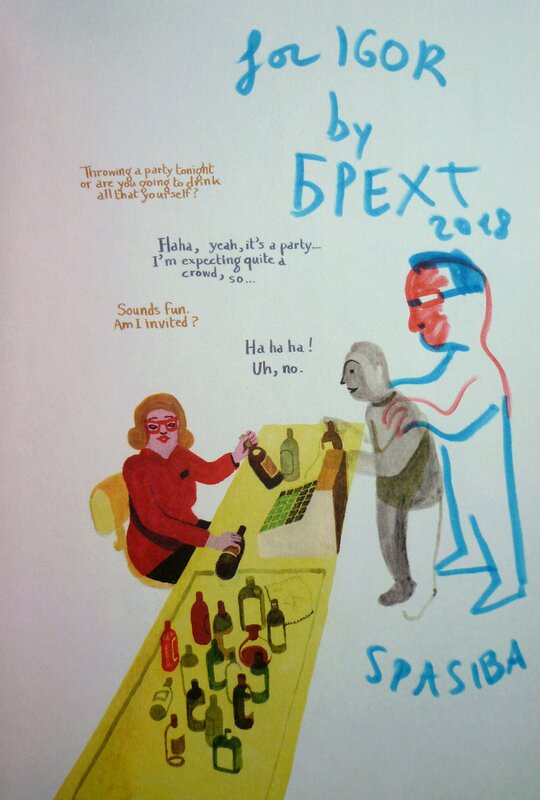 for IGOR
by
БРЕХТ
2018
Throwing a party tonight
or are you going to drink
all that yourself?
Haha, yeah, it's a party...
I'm expecting quite a
crowd, so...
Sounds fun.
Am I invited?
Ha ha ha!
Uh, no.
SPASIBA